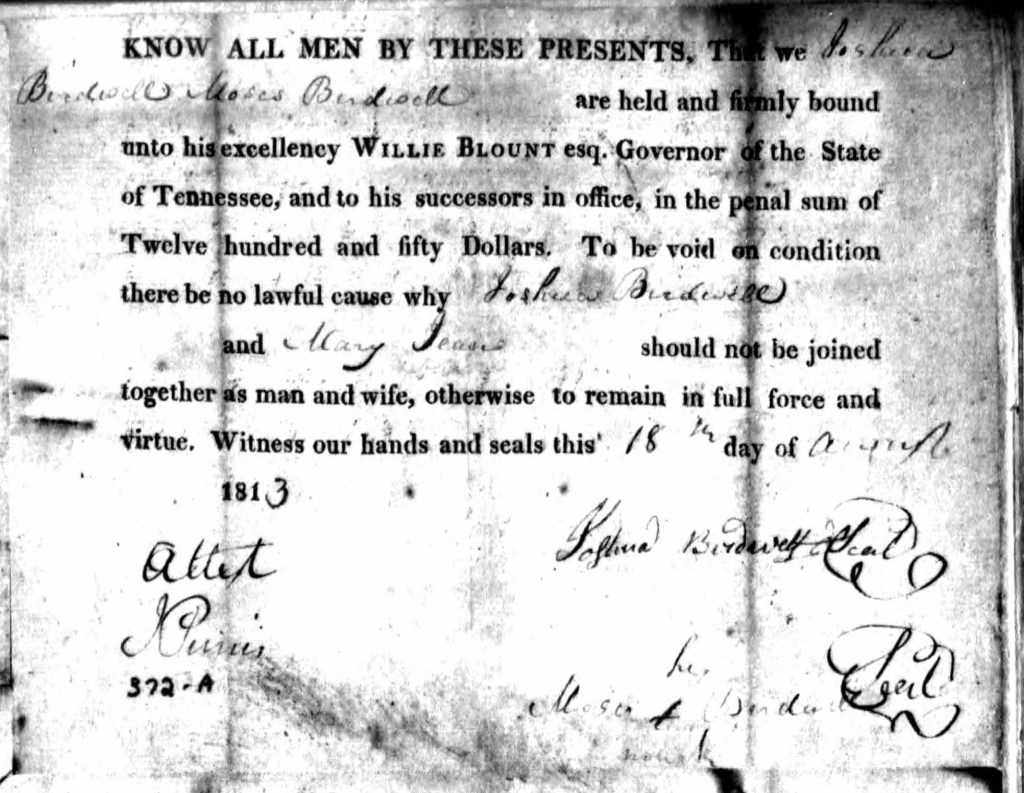 KNOW ALL MEN BY THESE PRESENTS, That we Joshua
Birdwell Moses Birdwell are held and firmly bound
unto his excellency WILLIE BLOUNT esq. Governor of the State
of Tennessee, and to his successors in office, in the penal sum of
Twelve hundred and fifty Dollars. To be void on condition
there be no lawful cause why Joshua Birdwell
and Mary should not be joined
together as man and wife, otherwise to remain in full force and
virtue. Witness our hands and seals this 18th day of August
1813
Attest
Joshua Birdwell Seal
372-A
his
Moses Birdwell Seal
mark